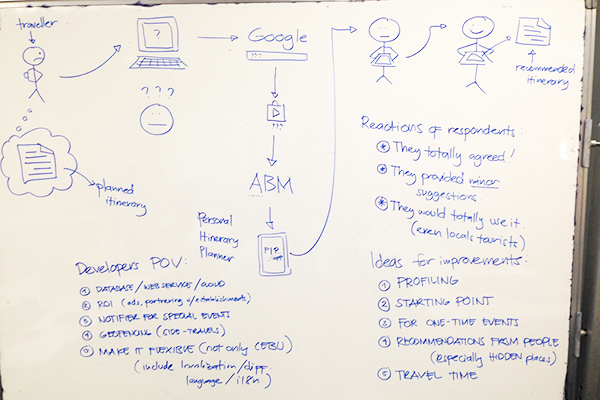 traveller
?
Google
? ? ?
???
planned
itinerary
ABM
Personal
Itinerary
Planner
PIP
app
recommended
itinerary
Reactions of respondents:
* They totally agreed!
* They provided minor
suggestions.
* They would totally use it.
(even locals tourists)
Developers POV:
1 DATABASE/WEB SERVICE/CLOUD
2 ROI (ads, partnering w/establishments)
3 NOTIFIER FOR SPECIAL EVENTS
4 GEOFENCING (SIDE-TRAVELS)
5 MAKE IT FLEXIBLE (not only CEBU)
(include localization/diff.
language/i18n)
Ideas for improvements:
1 PROFILING
2 STARTING POINT
3 FOR ONE-TIME EVENTS
4 RECOMMENDATIONS FROM PEOPLE
(especially HIDDEN places)
5 TRAVEL TIME